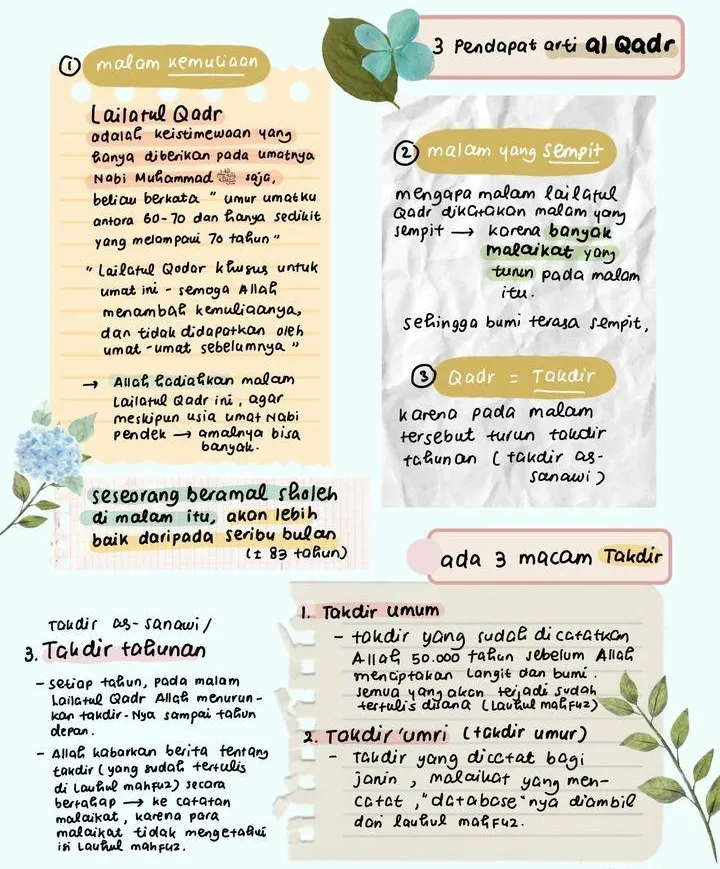 3 Pendapat arti al Qadr
① malam kemuliaan
Lailatul Qadr
adalah keistimewaan yang
hanya diberikan pada umatnya
Nabi Muhammad ﷺ saja,
beliau berkata " umur umatku
antara 60-70 dan hanya sedikit
yang melampaui 70 tahun "
" Lailatul Qodar khusus untuk
umat ini - semoga Allah
menambah kemuliaanya,
dan tidak didapatkan oleh
umat-umat sebelumnya "
→ Allah hadiahkan malam
Lailatul Qadr ini, agar
meskipun usia umat Nabi
pendek → amalnya bisa
banyak.
seseorang beramal sholeh
di malam itu, akan lebih
baik daripada seribu bulan
(± 83 tahun)
② malam yang sempit
mengapa malam lailatul
Qadr dikatakan malam yang
sempit → karena banyak
malaikat yang
turun pada malam
itu.
sehingga bumi terasa sempit,
③ Qadr = Takdir
karena pada malam
tersebut turun takdir
tahunan (takdir as-
sanawi)
ada 3 macam Takdir
1. Takdir umum
- takdir yang sudah dicatatkan
Allah 50.000 tahun sebelum Allah
menciptakan Langit dan bumi.
semua yang akan tejadi sudah
tertulis disana (Lauhul mahfuz)
2. Takdir 'umri (takdir umur)
- Takdir yang dicatat bagi
janin, malaikat yang men-
catat, "database"nya diambil
dari lauhul mahfuz.
Takdir as-sanawi/
3. Takdir tahunan
- setiap tahun, pada malam
Lailatul Qadr Allah menurun-
kan takdir-Nya sampai tahun
depan.
- Allah kabarkan berita tentang
takdir (yang sudah tertulis
di Lauhul mahfuz) secara
bertahap → ke catatan
malaikat, karena para
malaikat tidak mengetahui
isi Lauhul mahfuz.